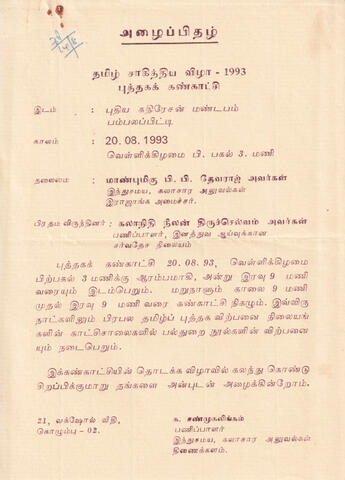 அழைப்பிதழ்
தமிழ் சாகித்திய விழா - 1993
புத்தகக் கண்காட்சி
இடம் : புதிய கதிரேசன் மண்டபம்
பம்பலப்பிட்டி
காலம் : 20.08.1993
வெள்ளிக்கிழமை பி. பகல் 3. மணி
தலைமை : மாண்புமிகு பி. பி. தேவராஜ் அவர்கள்
இந்துசமய, கலாசார அலுவல்கள்
இராஜாங்க அமைச்சர்.
பிரதம விருந்தினர் : கலாநிதி நீலன் திருச்செல்வம் அவர்கள்
பணிப்பாளர், இனத்துவ ஆய்வுக்கான
சர்வதேச நிலையம்
புத்தகக் கண்காட்சி 20.08.93, வெள்ளிக்கிழமை
பிற்பகல் 3 மணிக்கு ஆரம்பமாகி, அன்று இரவு 9 மணி
வரையும் இடம்பெறும். மறுநாளும் காலை 9 மணி
முதல் இரவு 9 மணி வரை கண்காட்சி நிகழும். இவ்விரு
நாட்களிலும் பிரபல தமிழ்ப் புத்தக விற்பனை நிலையங்
களின் காட்சிசாலைகளில் பல்துறை நூல்களின் விற்பனை
யும் நடைபெறும்.
இக்கண்காட்சியின் தொடக்க விழாவில் கலந்து கொண்டு
சிறப்பிக்குமாறு தங்களை அன்புடன் அழைக்கின்றோம்.
21, வக்ஷோல் வீதி,
கொழும்பு - 02.
க. சண்முகலிங்கம்
பணிப்பாளர்
இந்துசமய, கலாசார அலுவல்கள்
திணைக்களம்.